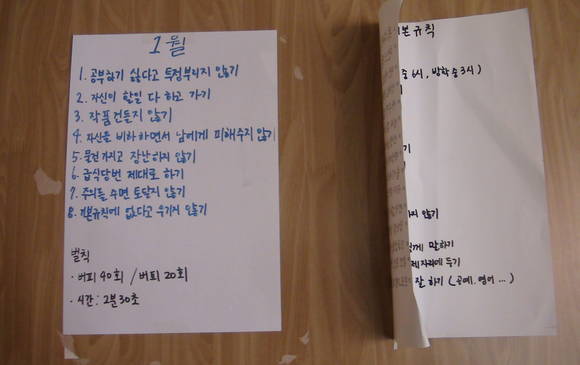 1월
1. 공부하기 싫다고 투정부리지 않기
2. 자신이 할일 다 하고 가기
3. 작품 건들지 않기
4. 자신을 비하하면서 남에게 피해주지 않기
5. 물건 가지고 장난하지 않기
6. 급식당번 제대로 하기
7. 주의를 주면 토달지 않기
8. 기본규칙에 없다고 우기지 않기
벌칙
· 버피 40회 / 버피 20회
· 시간 : 2분 30초
본 규칙
6시, 방학중 3시)
지 않기
게 말하기
제자리에 두기
잘 하기 (공예, 영어 ...)